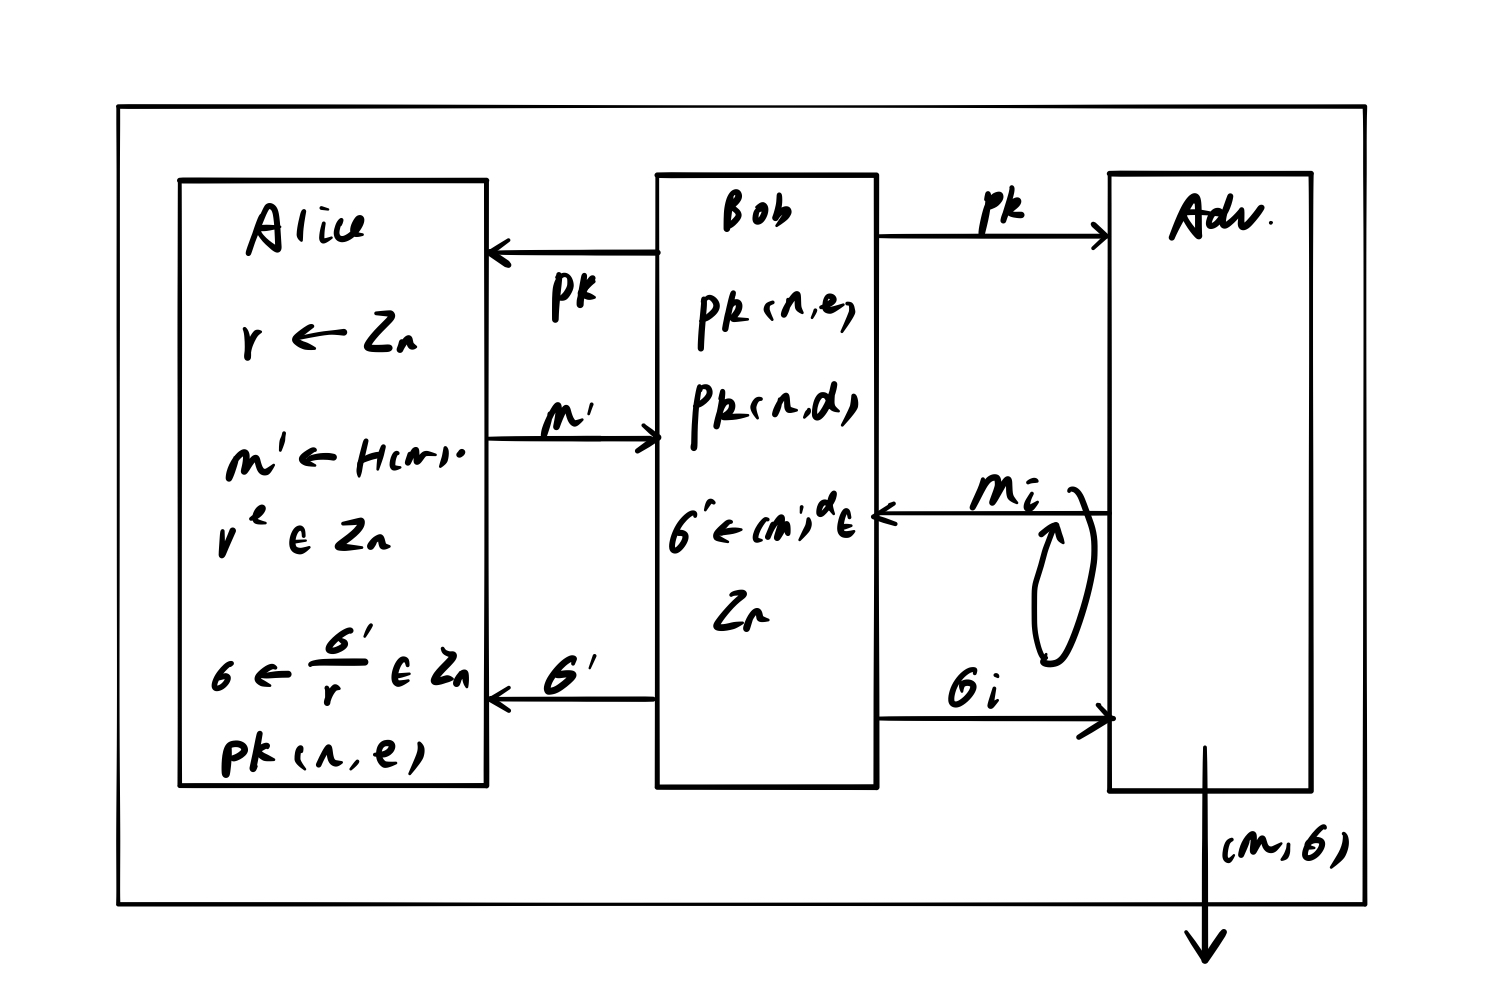 Alice
r ← Zn
m' ← H(m)·
r^e ∈ Zn
σ ← σ'/r ∈ Zn
pk (n, e)
pk
m'
σ'
Bob
pk (n, e)
pk (n, d)
σ' ← (m')^d ∈
Zn
pk
mi
σi
Adv.
(m, σ)